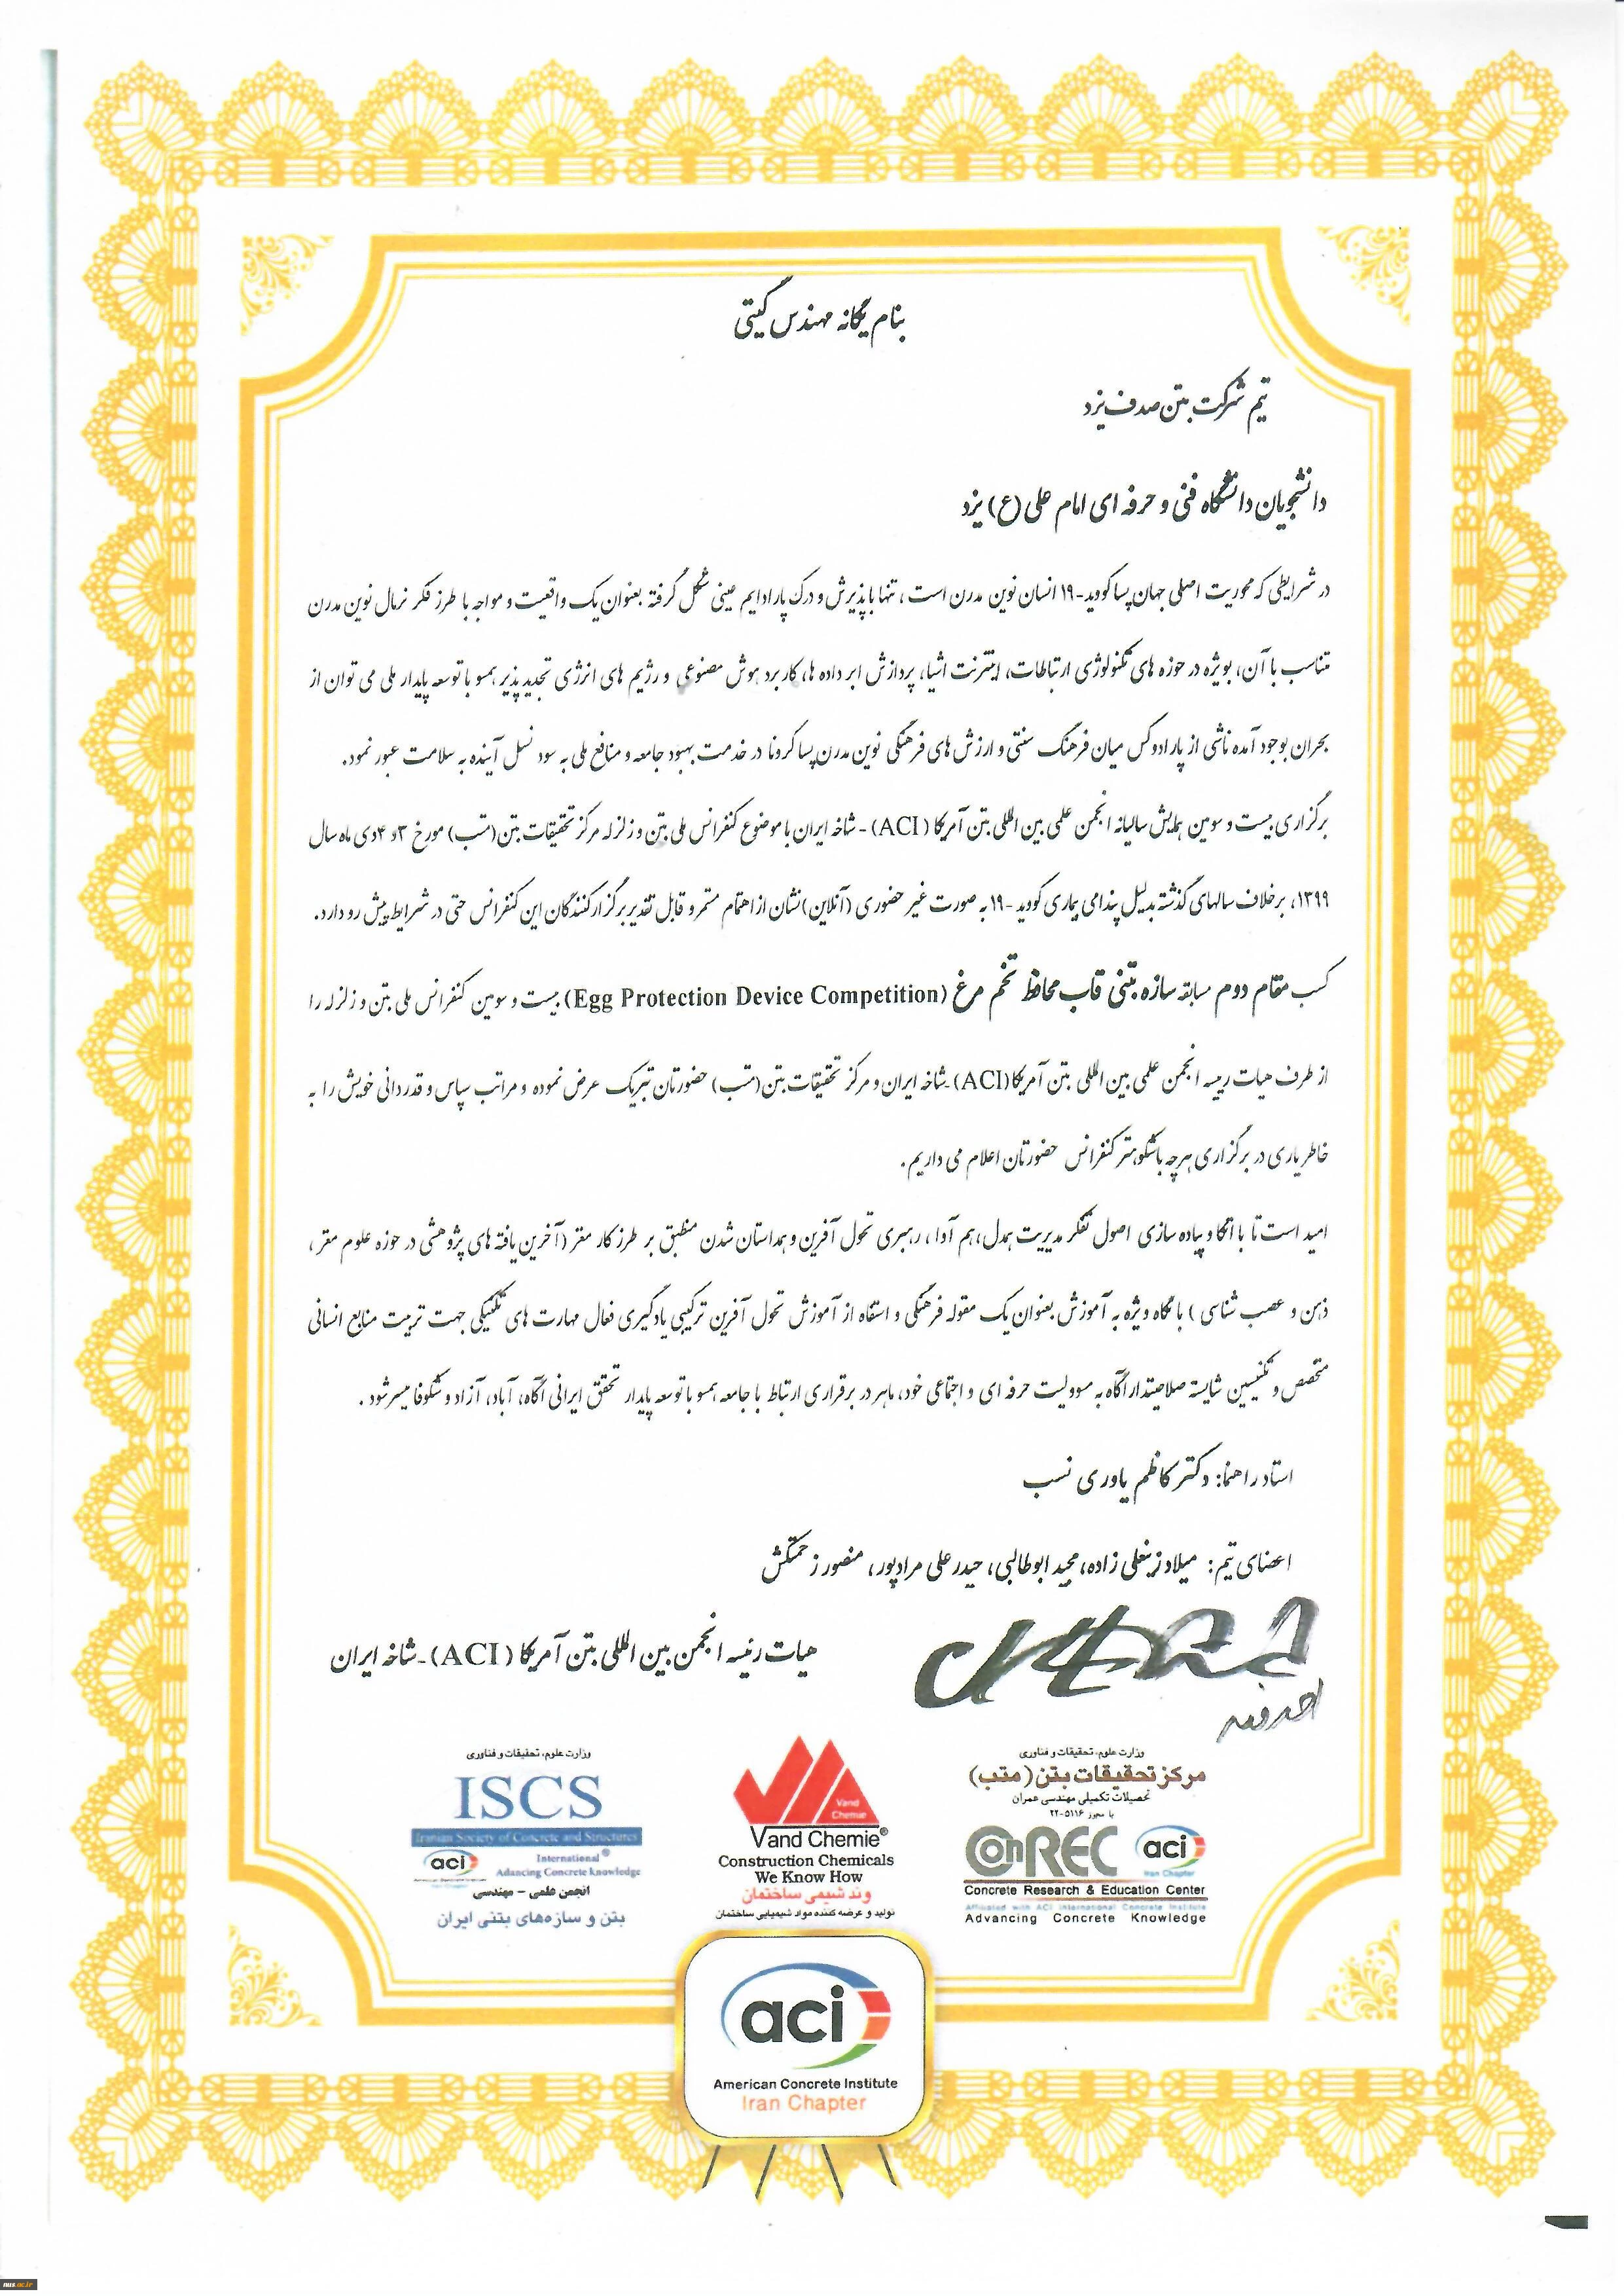 بنام یگانه مهندس گیتی
تیم شرکت بتن صدف یزد
دانشجویان دانشگاه فنی و حرفه ای امام علی (ع) یزد
در شرایطی که محوریت اصلی جهان پساکووید-۱۹ انسان نوین مدرن است، تنها با پذیرش و درک پارادایم عینی شکل گرفته بعنوان یک واقعیت و مواجه با طرز فکر نرمال نوین مدرن
متناسب با آن، بویژه در حوزه های تکنولوژی ارتباطات، اینترنت اشیا، پردازش ابر داده ها، کاربرد هوش مصنوعی و رژیم های انرژی تجدید پذیر همسو با توسعه پایدار ملی می توان از
بحران بوجود آمده ناشی از پارادوکس میان فرهنگ سنتی و ارزش های فرهنگی نوین مدرن پسا کرونا در خدمت بهبود جامعه و منافع ملی به سود نسل آینده به سلامت عبور نمود.
برگزاری بیست و سومین همایش سالیانه انجمن علمی بین المللی بتن آمریکا (ACI) - شاخه ایران با موضوع کنفرانس ملی بتن و زلزله مرکز تحقیقات بتن(متب) مورخ ۳و ۴دی ماه سال
۱۳۹۹، برخلاف سالهای گذشته بدلیل پندامی بیماری کووید -۱۹ به صورت غیر حضوری (آنلاین)نشان از اهتمام مستمر و قابل تقدیر برگزارکنندگان این کنفرانس حتی در شرایط پیش رو دارد.
کسب مقام دوم مسابقه سازه بتنی قاب محافظ تخم مرغ (Egg Protection Device Competition) بیست و سومین کنفرانس ملی بتن و زلزله را
از طرف هیات رییسه انجمن علمی بین المللی بتن آمریکا(ACI)-شاخه ایران و مرکز تحقیقات بتن(متب) حضورتان تبریک عرض نموده و مراتب سپاس و قدردانی خویش را به
خاطر یاری در برگزاری هرچه باشکوهتر کنفرانس حضورتان اعلام می داریم.
امید است تا با اتکا و پیاده سازی اصول تفکر مدیریت همدل،هم آوا، رهبری تحول آفرین و همداستان شدن منطبق بر طرز کار مغز (آخرین یافته های پژوهشی در حوزه علوم مغز،
ذهن و عصب شناسی ) با نگاه ویژه به آموزش بعنوان یک مقوله فرهنگی و استفاه از آموزش تحول آفرین ترکیبی یادگیری فعال مهارت های تکنیکی جهت تربیت منابع انسانی
متخصص و تکنسین شایسته صلاحیتدار آگاه به مسوولیت حرفه ای و اجتماعی خود، ماهر در برقراری ارتباط با جامعه همسو با توسعه پایدار تحقق ایرانی آگاه، آباد، آزاد و شکوفا میسر شود.
استاد راهنما: دکتر کاظم یاوری نسب
اعضای تیم: میلاد زینعلی زاده، مجید ابوطالبی، حیدرعلی مرادپور، منصور زحمتکش
هیات رئیسه انجمن بین المللی بتن آمریکا (ACI)-شاخه ایران
وزارت علوم، تحقیقات و فناوری
مرکز تحقیقات بتن (متب)
تحصیلات تکمیلی مهندسی عمران
با مجوز ۵۱۱۶-۲۲
ConREC aci
Iran Chapter
Concrete Research & Education Center
Affiliated with ACI International Concrete Institute
Advancing Concrete Knowledge
Vand Chemie
Vand Chemie®
Construction Chemicals
We Know How
وند شیمی ساختمان
تولید و عرضه کننده مواد شیمیایی ساختمان
وزارت علوم، تحقیقات و فناوری
ISCS
Iranian Society of Concrete and Structures
aci International®
Adancing Concrete knowledge
انجمن علمی - مهندسی
بتن و سازه‌های بتنی ایران
aci
American Concrete Institute
Iran Chapter
nus.ac.ir